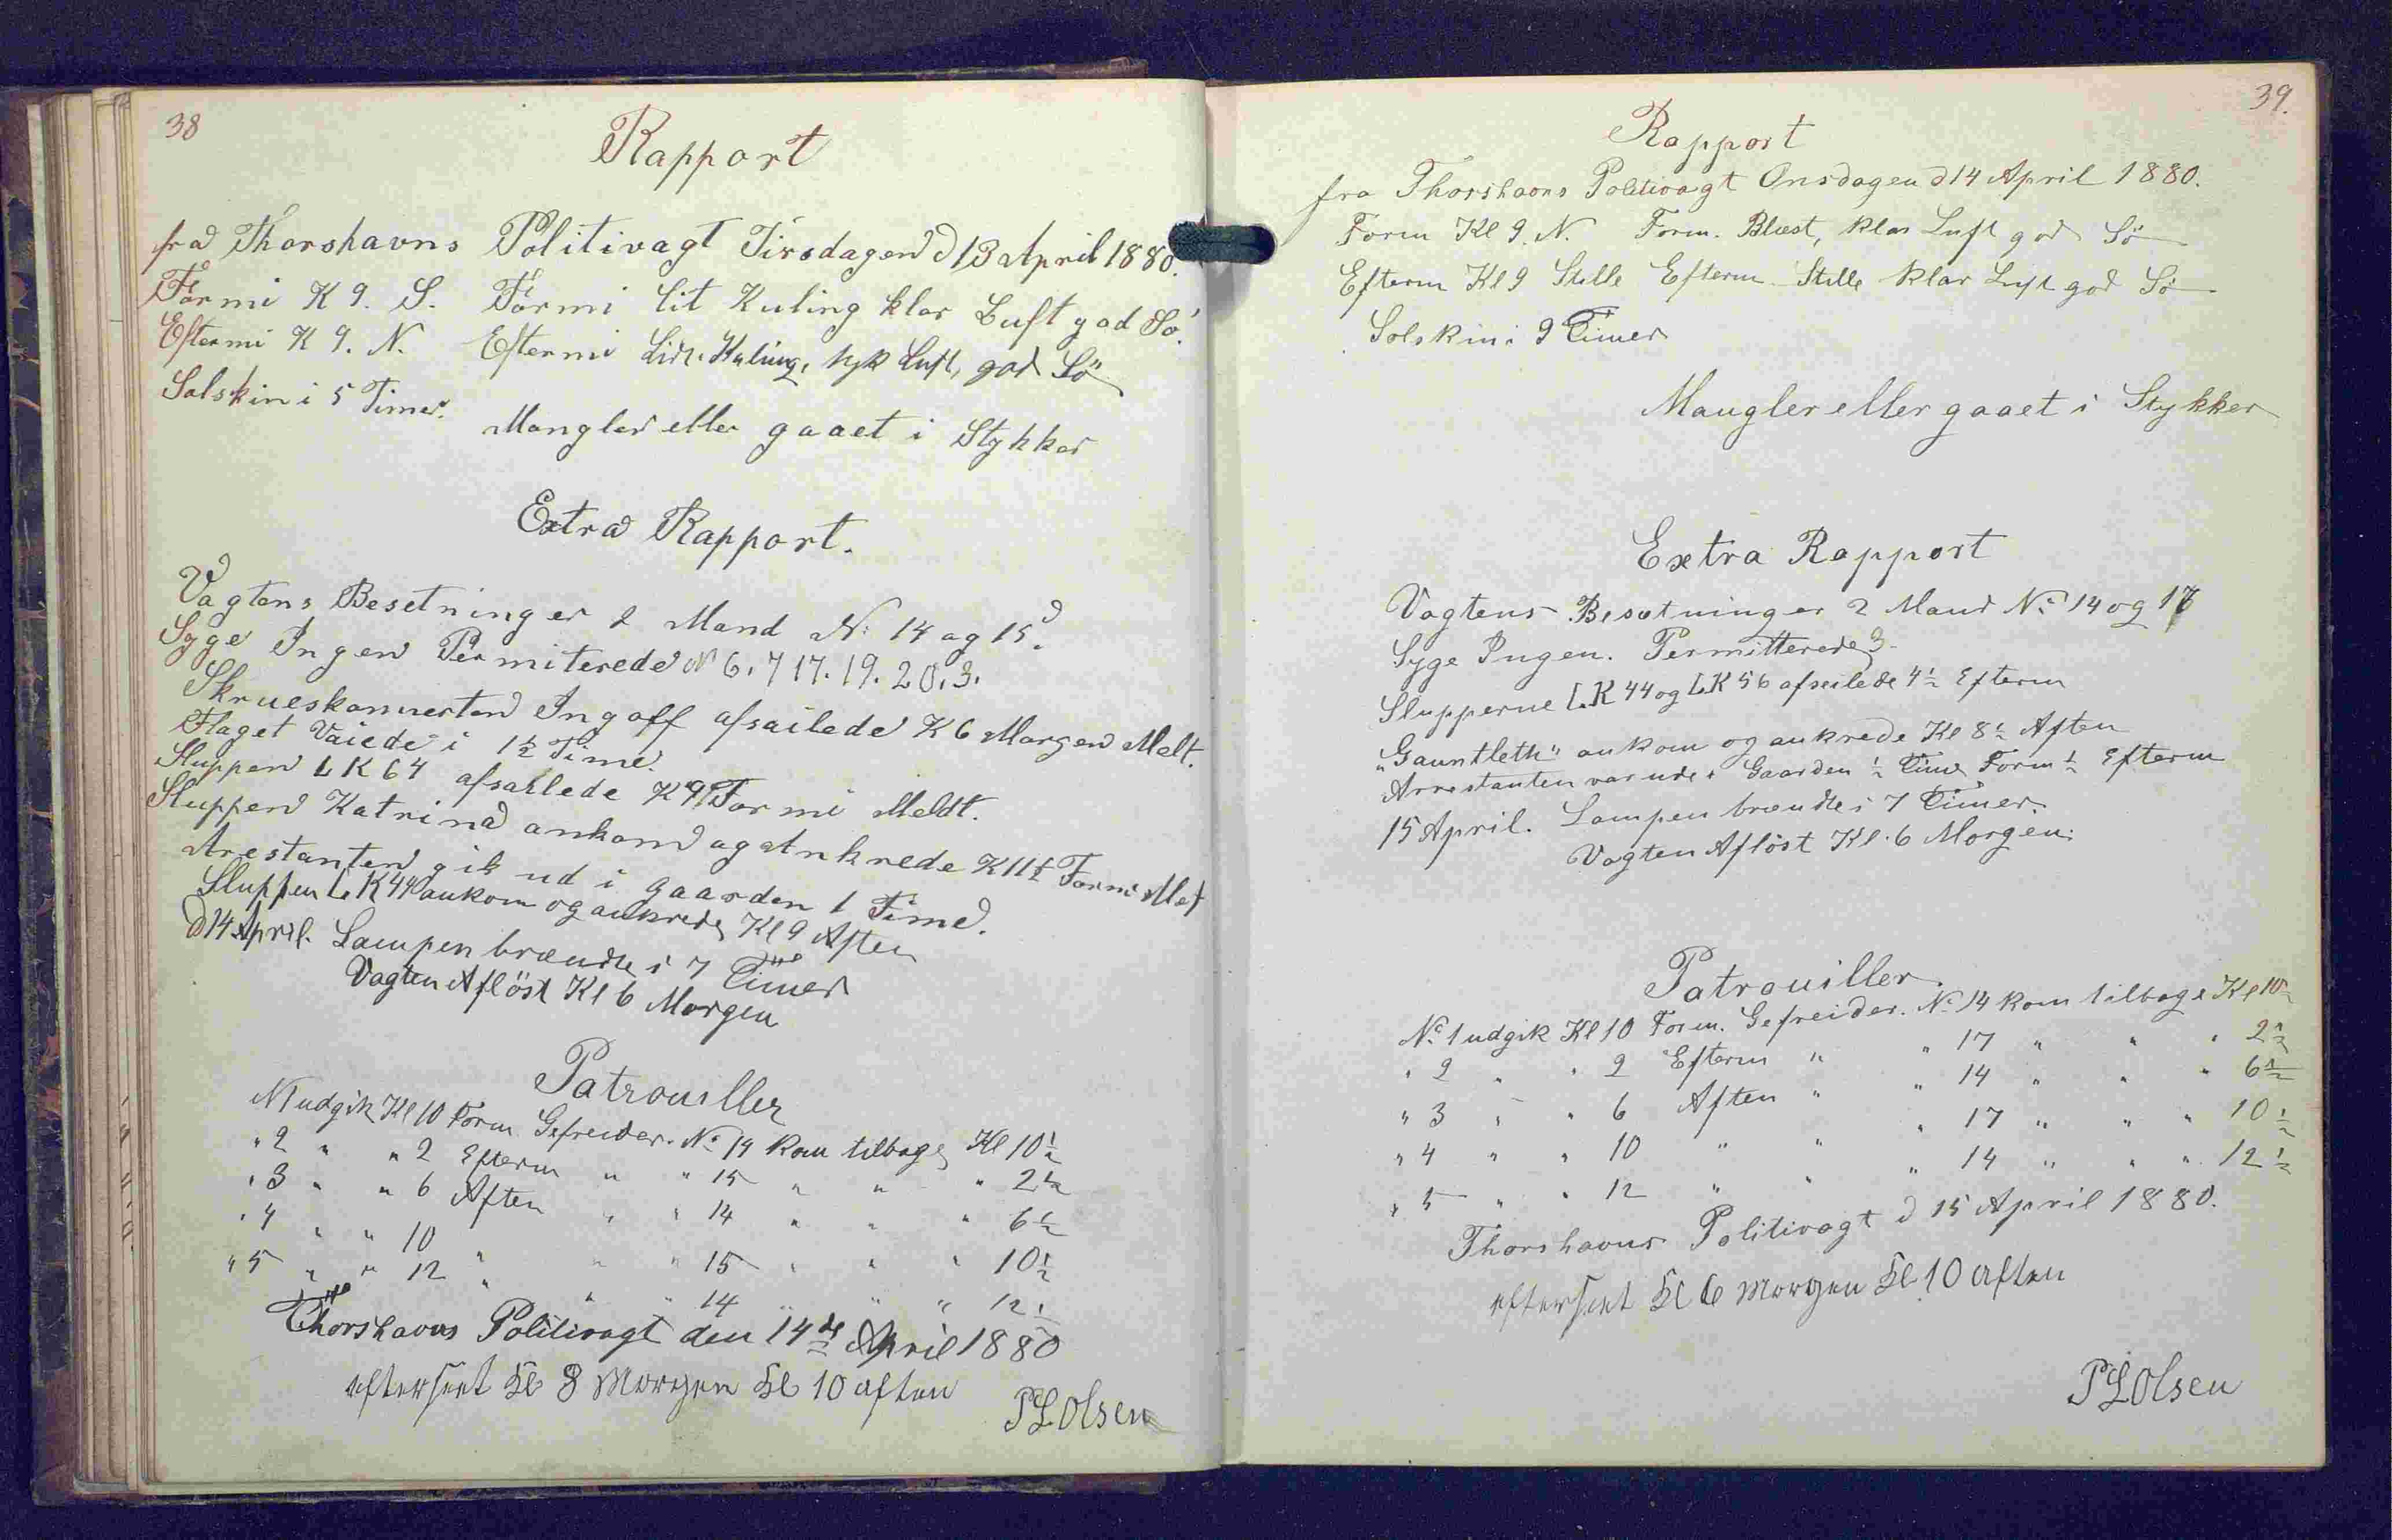 38
Rapport
fra Thorshavns Politivagt Tirsdagen d 13 April 1880.
Formi K 9. S. Formi lit Kuling klar Luft god Sø.
Eftermi K 9. N. Eftermi Lidt Kuling, tyk Luft, god Sö
Solskin i 5 Timer.
Mangler eller gaaet i Stykker
Extra Rapport.
Vagtens Besetning er 2 Mand N: 14 og 15.
Syge Ingen Permiterede N 6. 7 17. 19. 20. 3.
Skrueskonnerten Ingolf afsailede K 6 Morgen Melt.
Flaget Vaiede i 1½ Time.
Sluppen LK 64 afsailede K 9 Formi Meldt.
Sluppen Katrina ankom og Ankrede K 11½ Formi Melt
Arestanten gik ud i gaarden 1 Time.
Sluppen LK 44 ankom og ankrede Kl 9 Aften
d 14 April. Lampen brændte i 7 Timer
Vagten Aflöst Kl 6 Morgen
Patrouiller
N 1 udgik Kl 10 Form. Gefreider. No 14 kom tilbage Kl 10½
" 2 " " 2 Efterm " " 15 " " " 2½
" 3 " " 6 Aften " " 14 " " " 6½
" 4 " " 10 " " " 15 " " " 10½
" 5 " " 12 " " " 14 " " " 12½
Thorshavns Politivagt den 14de April 1880
efterseet Kl 8 Morgen Kl 10 aften
PL Olsen
39.
Rapport
fra Thorshavns Politivagt Onsdagen d 14 April 1880.
Form Kl 9. N. Form. Blæst, klar Luft god Sö
Efterm Kl 9 Stille Efterm. Stille klar Luft god Sö
Solskin i 9 Timer
Mangler eller gaaet i Stykker
Extra Rapport
Vagtens Besætning er 2 Mand No 14 og 17
Syge Ingen. Permitterede 3.
Slupperne LK 44 og LK 56 afseilede 4½ Efterm
"Gauntleth" ankom og ankrede Kl 8½ Aften
Arrestanten var ude i Gaarden ½ Time Form ½ Efterm
15 April. Lampen brændte i 7 Timer.
Vagten Aflöst Kl. 6 Morgen.
Patrouiller.
No 1 udgik Kl 10 Form. Gefreider. No 14 kom tilbage Kl 10½
" 2 " " 2 Efterm " " 17 " " " 2½
" 3 " " 6 Aften " " 14 " " " 6½
" 4 " " 10 " " " 17 " " " 10½
" 5 " " 12 " " " 14 " " " 12½
Thorshavns Politivagt d 15 April 1880.
efterseet Kl 6 Morgen Kl 10 aften
PL Olsen